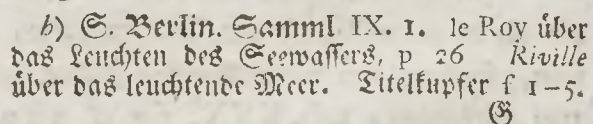 b) S. Berlin. Samml IX. 1. le Roy über
das Leuchten des Seewassers, p 26 Riville
über das leuchtende Meer. Titelkupfer f 1-5.
(G)